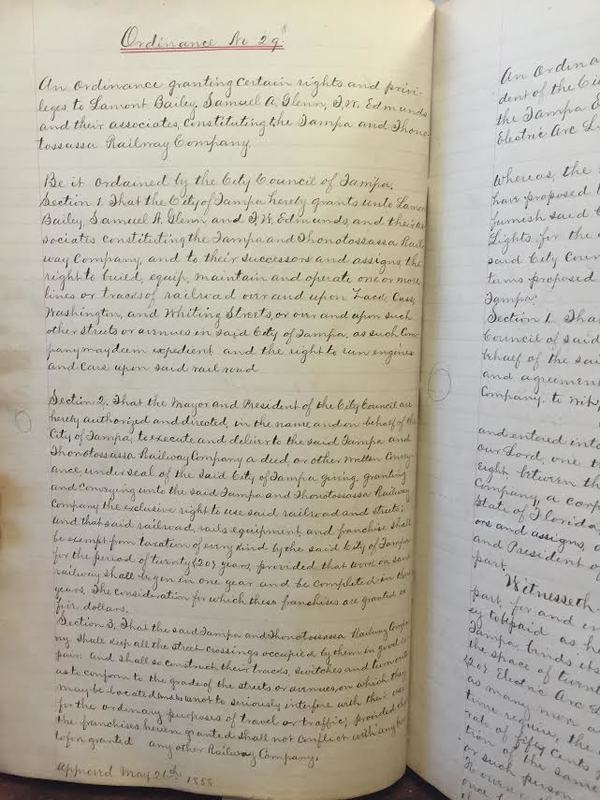 Ordinance No 29.
An Ordinance granting certain rights and privi-
leges to Lamont Bailey, Samuel A. Glenn, F. W. Edmunds
and their associates, constituting the Tampa and Thono-
tossassa Railway Company
Be it ordained by the City Council of Tampa.
Section 1. That the City of Tampa hereby grants unto Lamont
Bailey Samuel A. Glenn, and F. W. Edmunds, and their as
sociates constituting the Tampa and Thonotossassa Rail
way Company, and to their successors and assigns the
right to build, equip, maintain and operate one or more
lines or tracks of railroad over and upon Zack, Cass,
Washington, and Whiting Streets, or over and upon such
other streets or avenues in said City of Tampa, as such Com-
pany may deem expedient and the right to run engines
and cars upon said rail road
Section 2. That the Mayor and President of the City Council are
hereby authorized and directed, in the name and on behalf of the
City of Tampa, to execute and deliver to the said Tampa and
Thonotossassa Railway Company a deed, or other written convey-
ance under seal of the said City of Tampa giving, granting
and conveying unto the said Tampa and Thonotossassa Railway
Company the exclusive right to use said railroad and streets;
and that said railroad, rails equipment, and franchise shall
be exempt from taxation of every kind by the said City of Tampa
for the period of twenty (20) years, provided that work on said
railway shall begin in one year and be completed in three
years. The consideration for which these franchises are granted is
five dollars.
Section 3. That the said Tampa and Thonotossassa Railway Compa
ny shall keep all the street crossings occupied by them in good re
pair and shall so construct their tracks, switches and turnouts
as to conform to the grade of the streets or avenues, on which they
may be located and so as not to seriously interfere with their use
for the ordinary purposes of travel or traffic; provided that
the franchises herein granted shall not conflict with any here
tofore granted any other Railway Company.
Approved May 26th 1888
An Ordina
dent of the Ci
the Tampa E
Electric Arc L
Whereas, the
have proposed t
furnish said C
Lights, for the
said City Coun
terms proposed
Tampa.
Section 1. Tha
Council of said
behalf of the sai
and agreemen
Company, to wit,
and entered into
our Lord, one t
Eight, between th
Company, a corp
State of Florida,
ors and assigns, o
and President of
part.
Witnesseth-
part for and in
ey to be paid as he
Tampa binds its
the space of twent
(20) Electric Arc L
as many more a
time require, the
rate of fifty cents p
tion of the same
or such person